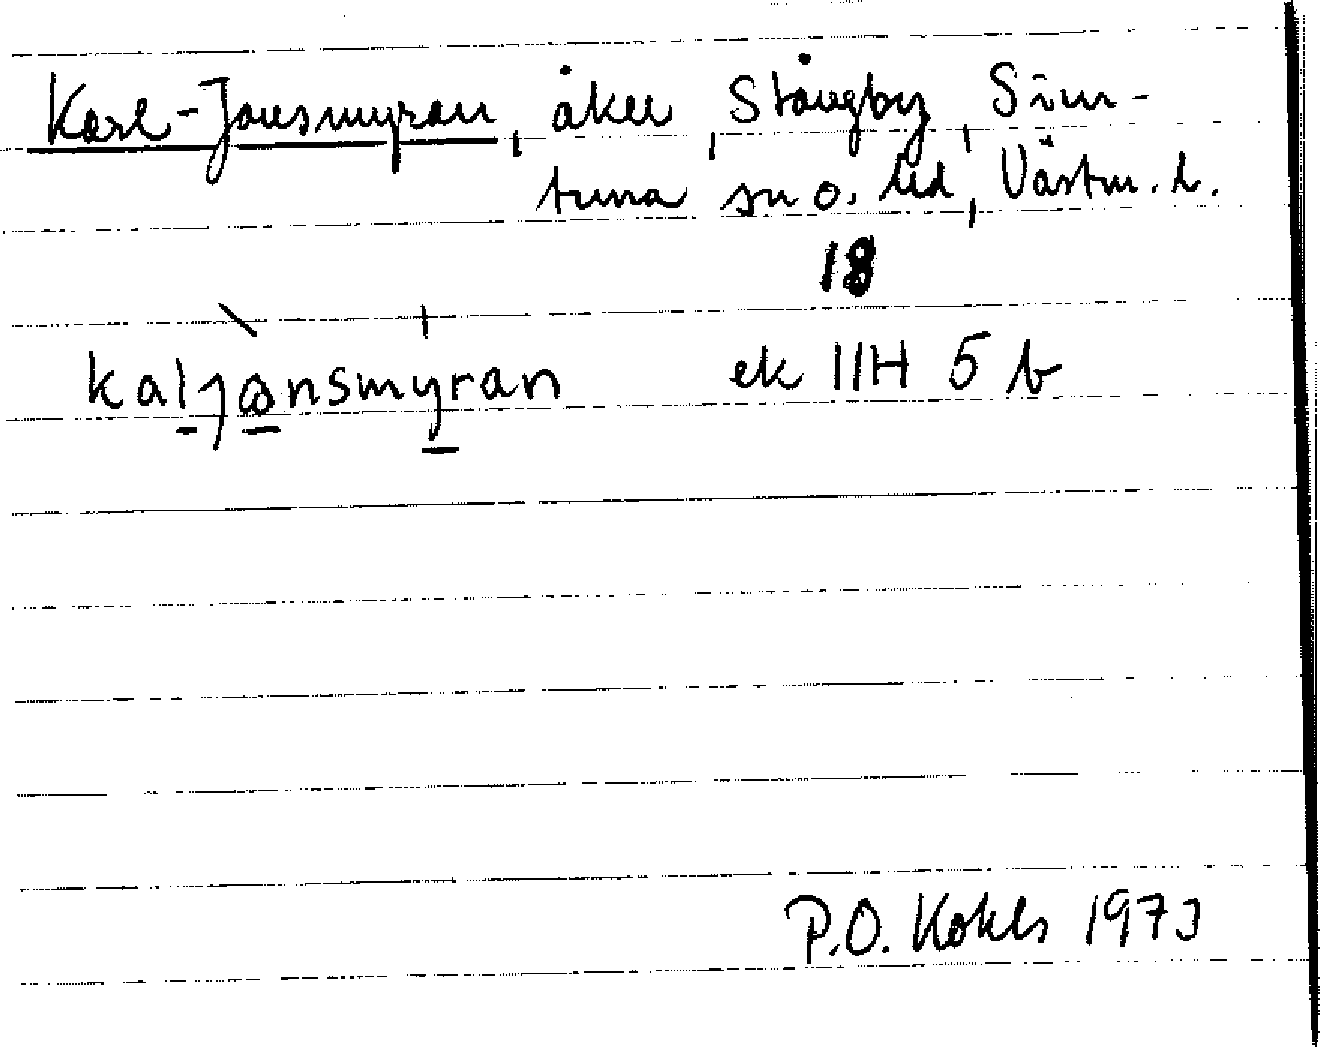 Karl-Jonsmyran, åker, Stångby, Sim-
tuna sn o. hd, Västm. l.
18
kaljonsmyran ek 11H 5 b
P.O. Kohls 1973